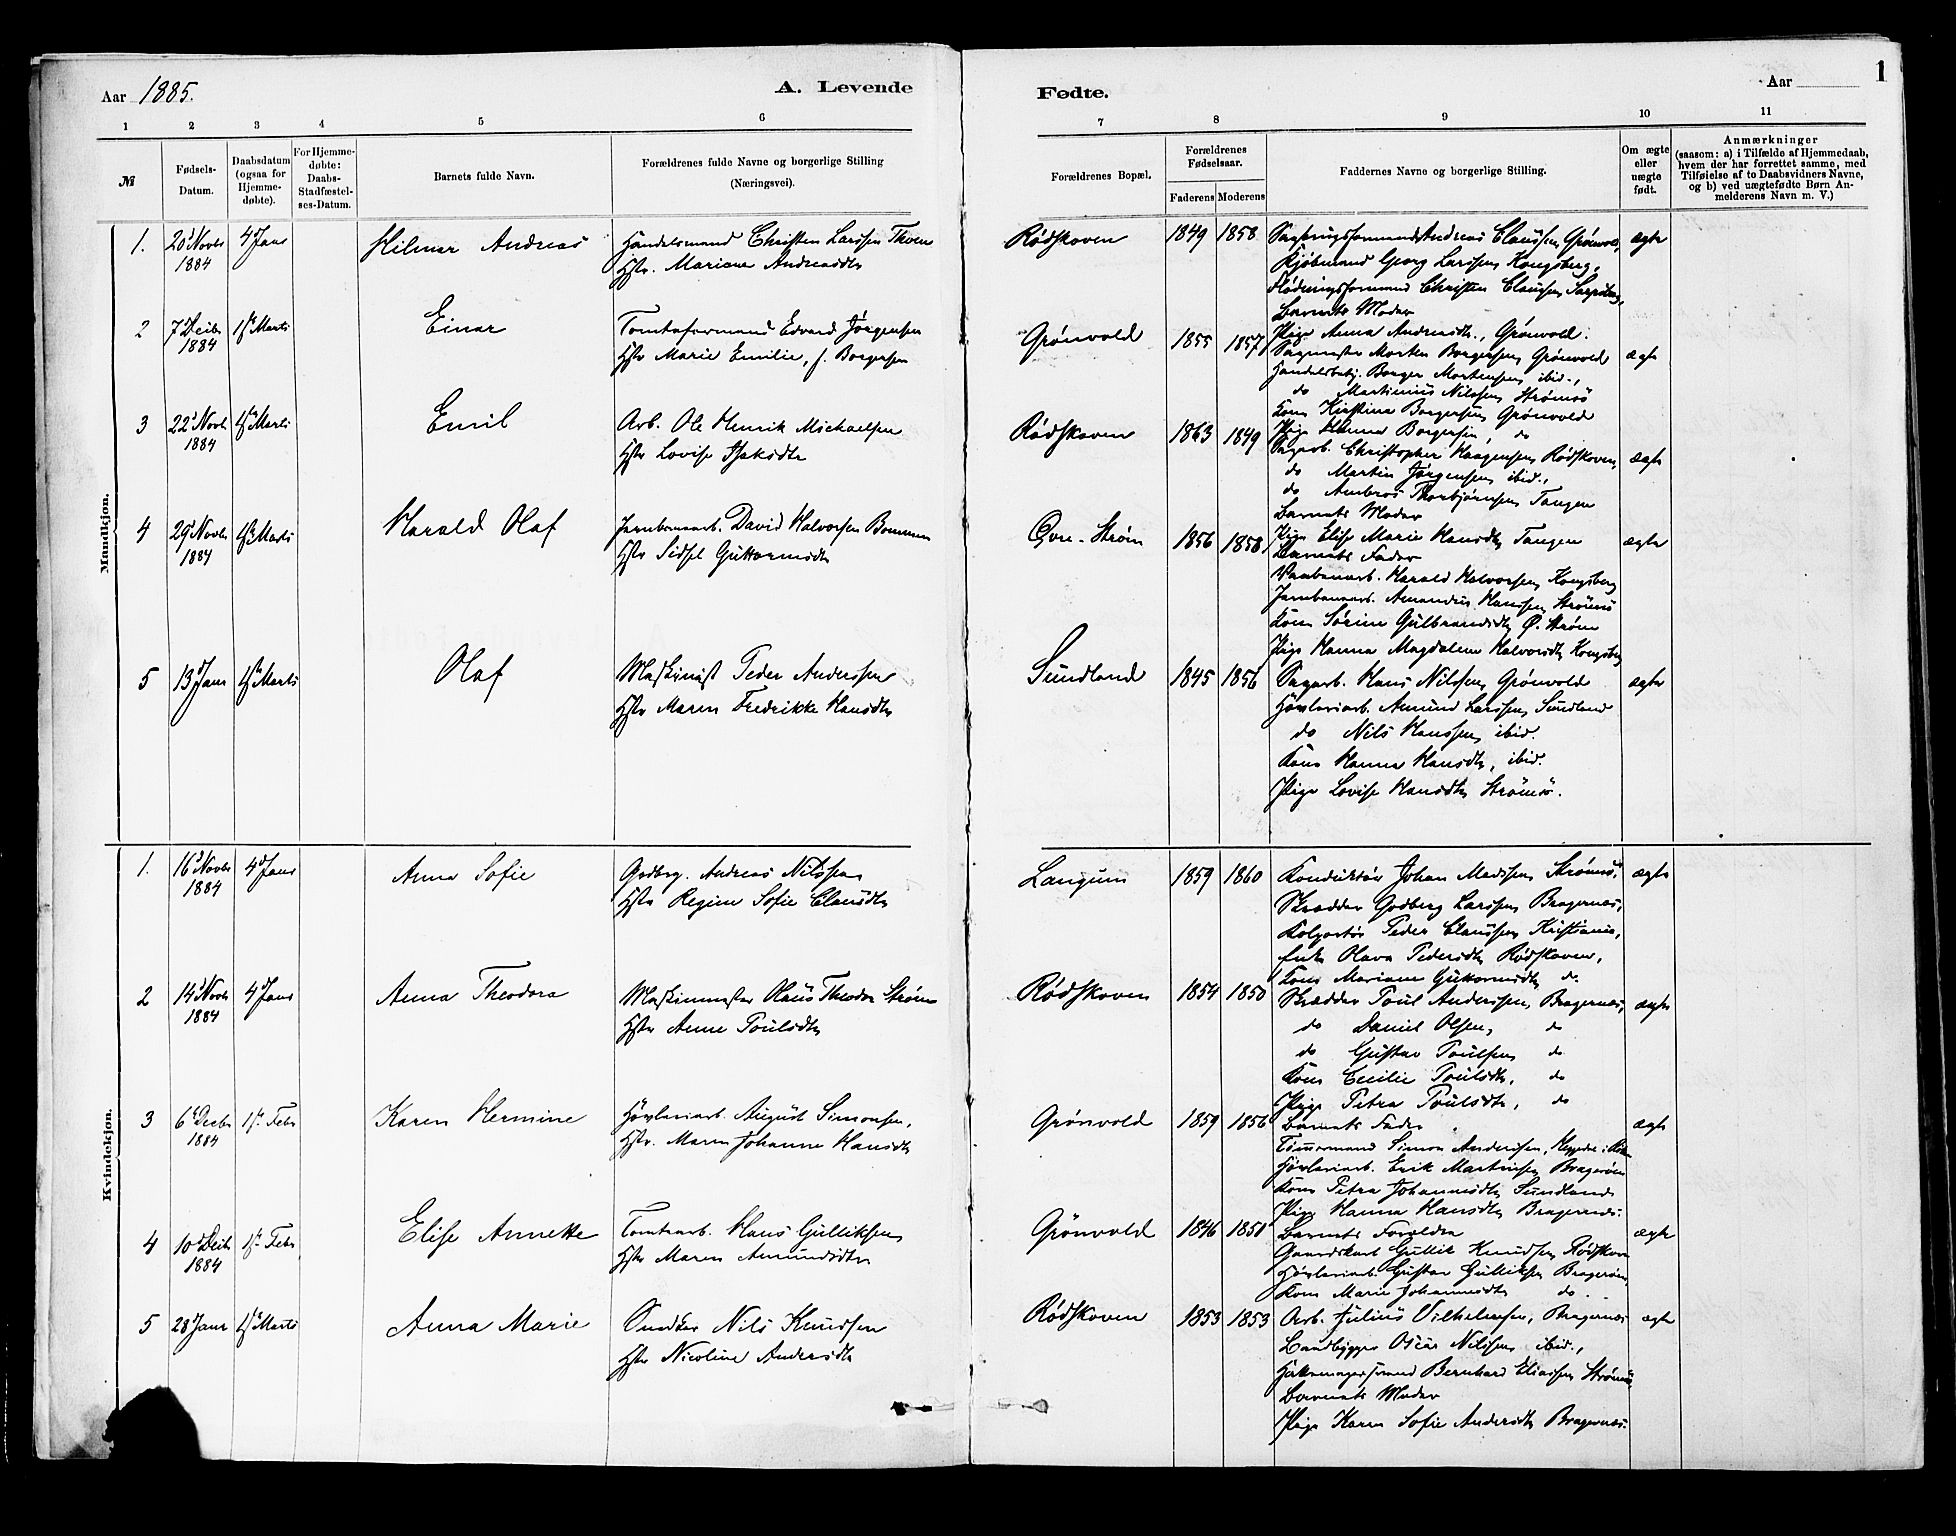 Aar 1885.
A. Levende
Fødte.
Aar
1
1 2 3 4 5 6
7 8 9 10 11
№
Fødsels-Datum.
Daabsdatum (ogsaa for Hjemmedøbte).
For Hjemmedøbte: Daabs-Stadfæstelses-Datum.
Barnets fulde Navn.
Forældrenes fulde Navne og borgerlige Stilling (Næringsvei).
Forældrenes Bopæl.
Forældrenes Fødselsaar.
Faderens Moderens
Faddernes Navne og borgerlige Stilling.
Om ægte eller uægte født.
Anmærkninger
(saasom: a) i Tilfælde af Hjemmedaab,
hvem der har forrettet samme, med
Tilføielse af to Daabsvidners Navne,
og b) ved uægtefødte Børn Anmelderens Navn m. V.)
Mandkjøn.
1. 20d Novbr 1884 4d Janr Hilmar Andreas
Handelsmand Christen Larssen Thoen
Hstr. Mariane Andreasdtr
Rødskoven 1849 1858
Andreas Claussen, Grønvold, ægte
Kjøbmand Georg Larssen, Kongsberg,
Flødningsformand Christen Claussen, Sarpsborg,
Barnets Moder
Pige Anna Andreasdtr., Grønvold.
2 7d Decbr 1884 1ste Marts Einar
Tomteformand Edvard Jørgensen
Hstr Marie Emilie, f. Borgersen
Grønvold 1855 1857
Sagmester Morten Borgersen, Grønvold ægte
Handelsbetj. Borger Mortensen, ibid.,
do Martinius Nilssen, Strømsø
Kone Kirstine Borgersen, Grønvold
Pige Hanna Borgersen, do
3 22d Novbr 1884 1ste Marts Emil
Arb. Ole Henrik Michaelsen
Hstr Lovise Isaksdtr
Rødskoven 1863 1849
Sagarb. Christopher Haagensen, Rødskoven, ægte
do Martin Jørgensen, ibid.,
do Ambros Thorbjørnsen, Tangen
Barnets Moder
Pige Elise Marie Hansdtr, Tangen
4 29d Novbr 1884 1ste Marts Harald Olaf
Jernbanearb. David Halvorsen
Hstr Sidsel Guttormsdtr
Øvre-Strøm 1856 1858
Barnets Fader ægte
Vaabenarb. Harald Halvorsen, Kongsberg
Jernbanearb. Amandus Hansen, Strømsø
Kone Sørine Gulbrandsdtr, Ø. Strøm
Pige Hanna Magdalene Halvorsdtr, Kongsberg
5 13d Janr 1ste Marts Olaf
Maskinist Peder Anderssen
Hstr Maren Fredrikke Hansdtr
Sundland 1845 1856
Sagarb. Hans Nilssen, Grønvold ægte
Høvleriarb. Amund Larssen, Sundland
do Nils Hanssen, ibid.
Kone Hanna Hansdtr, ibid.
Pige Lovise Hansdtr, Strømsø.
Kvindekjøn.
1. 16d Novbr 1884 4d Janr Anna Sofie
Godberg. Andreas Nilssen
Hstr Regine Sofie Clausdtr
Langum 1859 1860
Konduktør Johan Madssen, Strømsø, ægte
Skrædder Godberg Larssen, Bragernæs,
Kolportør Peder Claussen, Kristiania,
Enke Olava Pedersdtr, Rødskoven,
Kone Mariane Guttormsdtr do.
2 14d Novbr 1884 4d Janr Anna Theodora
Maskinmester Olaus Theodor Strøm
Hstr Anne Poulsdtr
Rødskoven 1854 1850
Skrædder Poul Anderssen, Bragernæs, ægte
do Daniel Olsen, do
do Gustav Poulsen, do
Kone Cecilie Poulsdtr, do
Pige Petra Poulsdtr, do
3 6d Decbr 1884 1ste Febr Karen Hermine
Høvleriarb. August Simonsen,
Hstr. Maren Johanne Hansdtr
Grønvold 1859 1856
Barnets Fader ægte
Tømmermand Simon Anderssen,
Høvleriarb. Erik Martinsen, Bragerøen
Kone Petra Johannesdtr, Sundland
Pige Hanna Hansdtr, Bragernæs.
4 10d Decbr 1884 1ste Febr Elise Annette
Tomtearb. Hans Gulliksen,
Hstr Maren Amundsdtr
Grønvold 1846 1850
Barnets Forældre ægte
Gaardskarl Gullik Knudsen, Rødskoven
Høvleriarb. Gustav Gulliksen, Bragerøen,
Kone Marie Johannesdtr do.
5 28d Janr 1ste Marts Anna Marie
Snedker Nils Knudsen
Hstr Nicoline Andersdtr
Rødskoven 1853 1853
Arb. Julius Vilhelmsen, Bragernæs ægte
Baadbygger Oscar Nilssen, ibid.,
Bernhard Eliassen, Strømsø,
Barnets Moder
Pige Karen Sofie Andersdtr, Bragernæs.